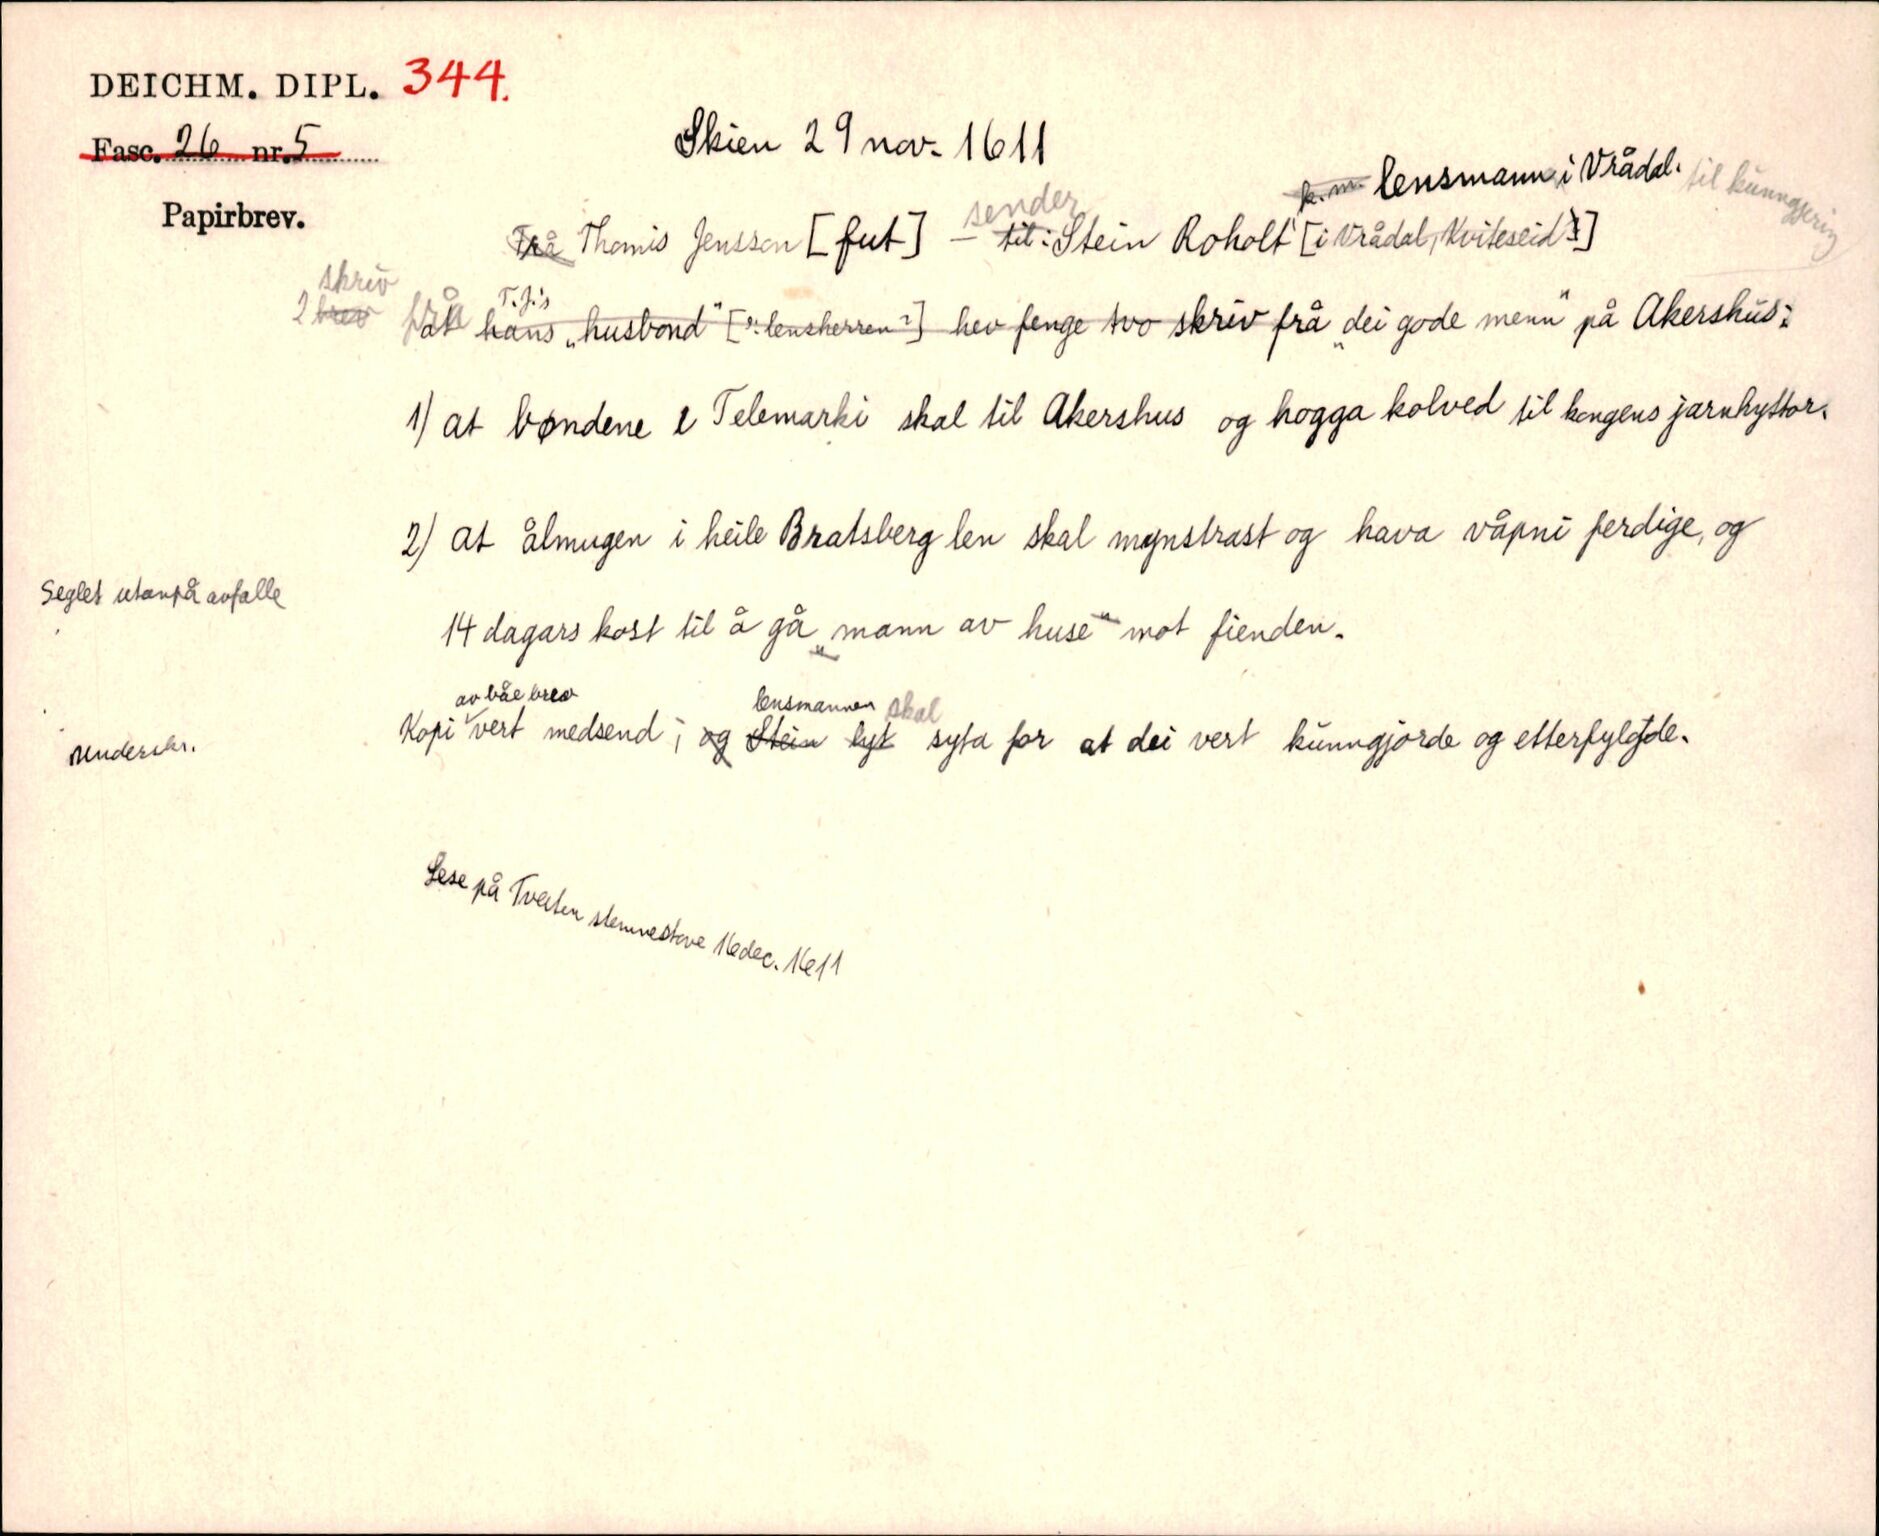 DEICHM. DIPL. 344.
Fasc. 26 nr. 5
Skien 29 nov. 1611
Papirbrev.
k. m. lensmann i Vrådal. til kunngjering
sender
Frå Thomis Jensson [fut] – til: Stein Roholt [i Vrådal, Kviteseid]
skriv T.J.'s
2 brev frå at hans „husbond" [ɔ: lensherren?] hev fenge tvo skriv frå „dei gode menn" på Akershus:
1) at bøndene i Telemarki skal til Akershus og hogga kolved til kongens jarnhyttor.
2) at ålmugen i heile Bratsberg len skal mynstrast og hava våpni ferdige, og
Seglet utanpå avfalle
14 dagars kost til å gå „mann av huse" mot fienden.
av båe brev lensmannen skal
Kopi vert medsend; og Stein lyt syta for at dei vert kunngjorde og etterfylgde.
Underskr.
Lese på Tveiten stemnestove 16 dec. 1611